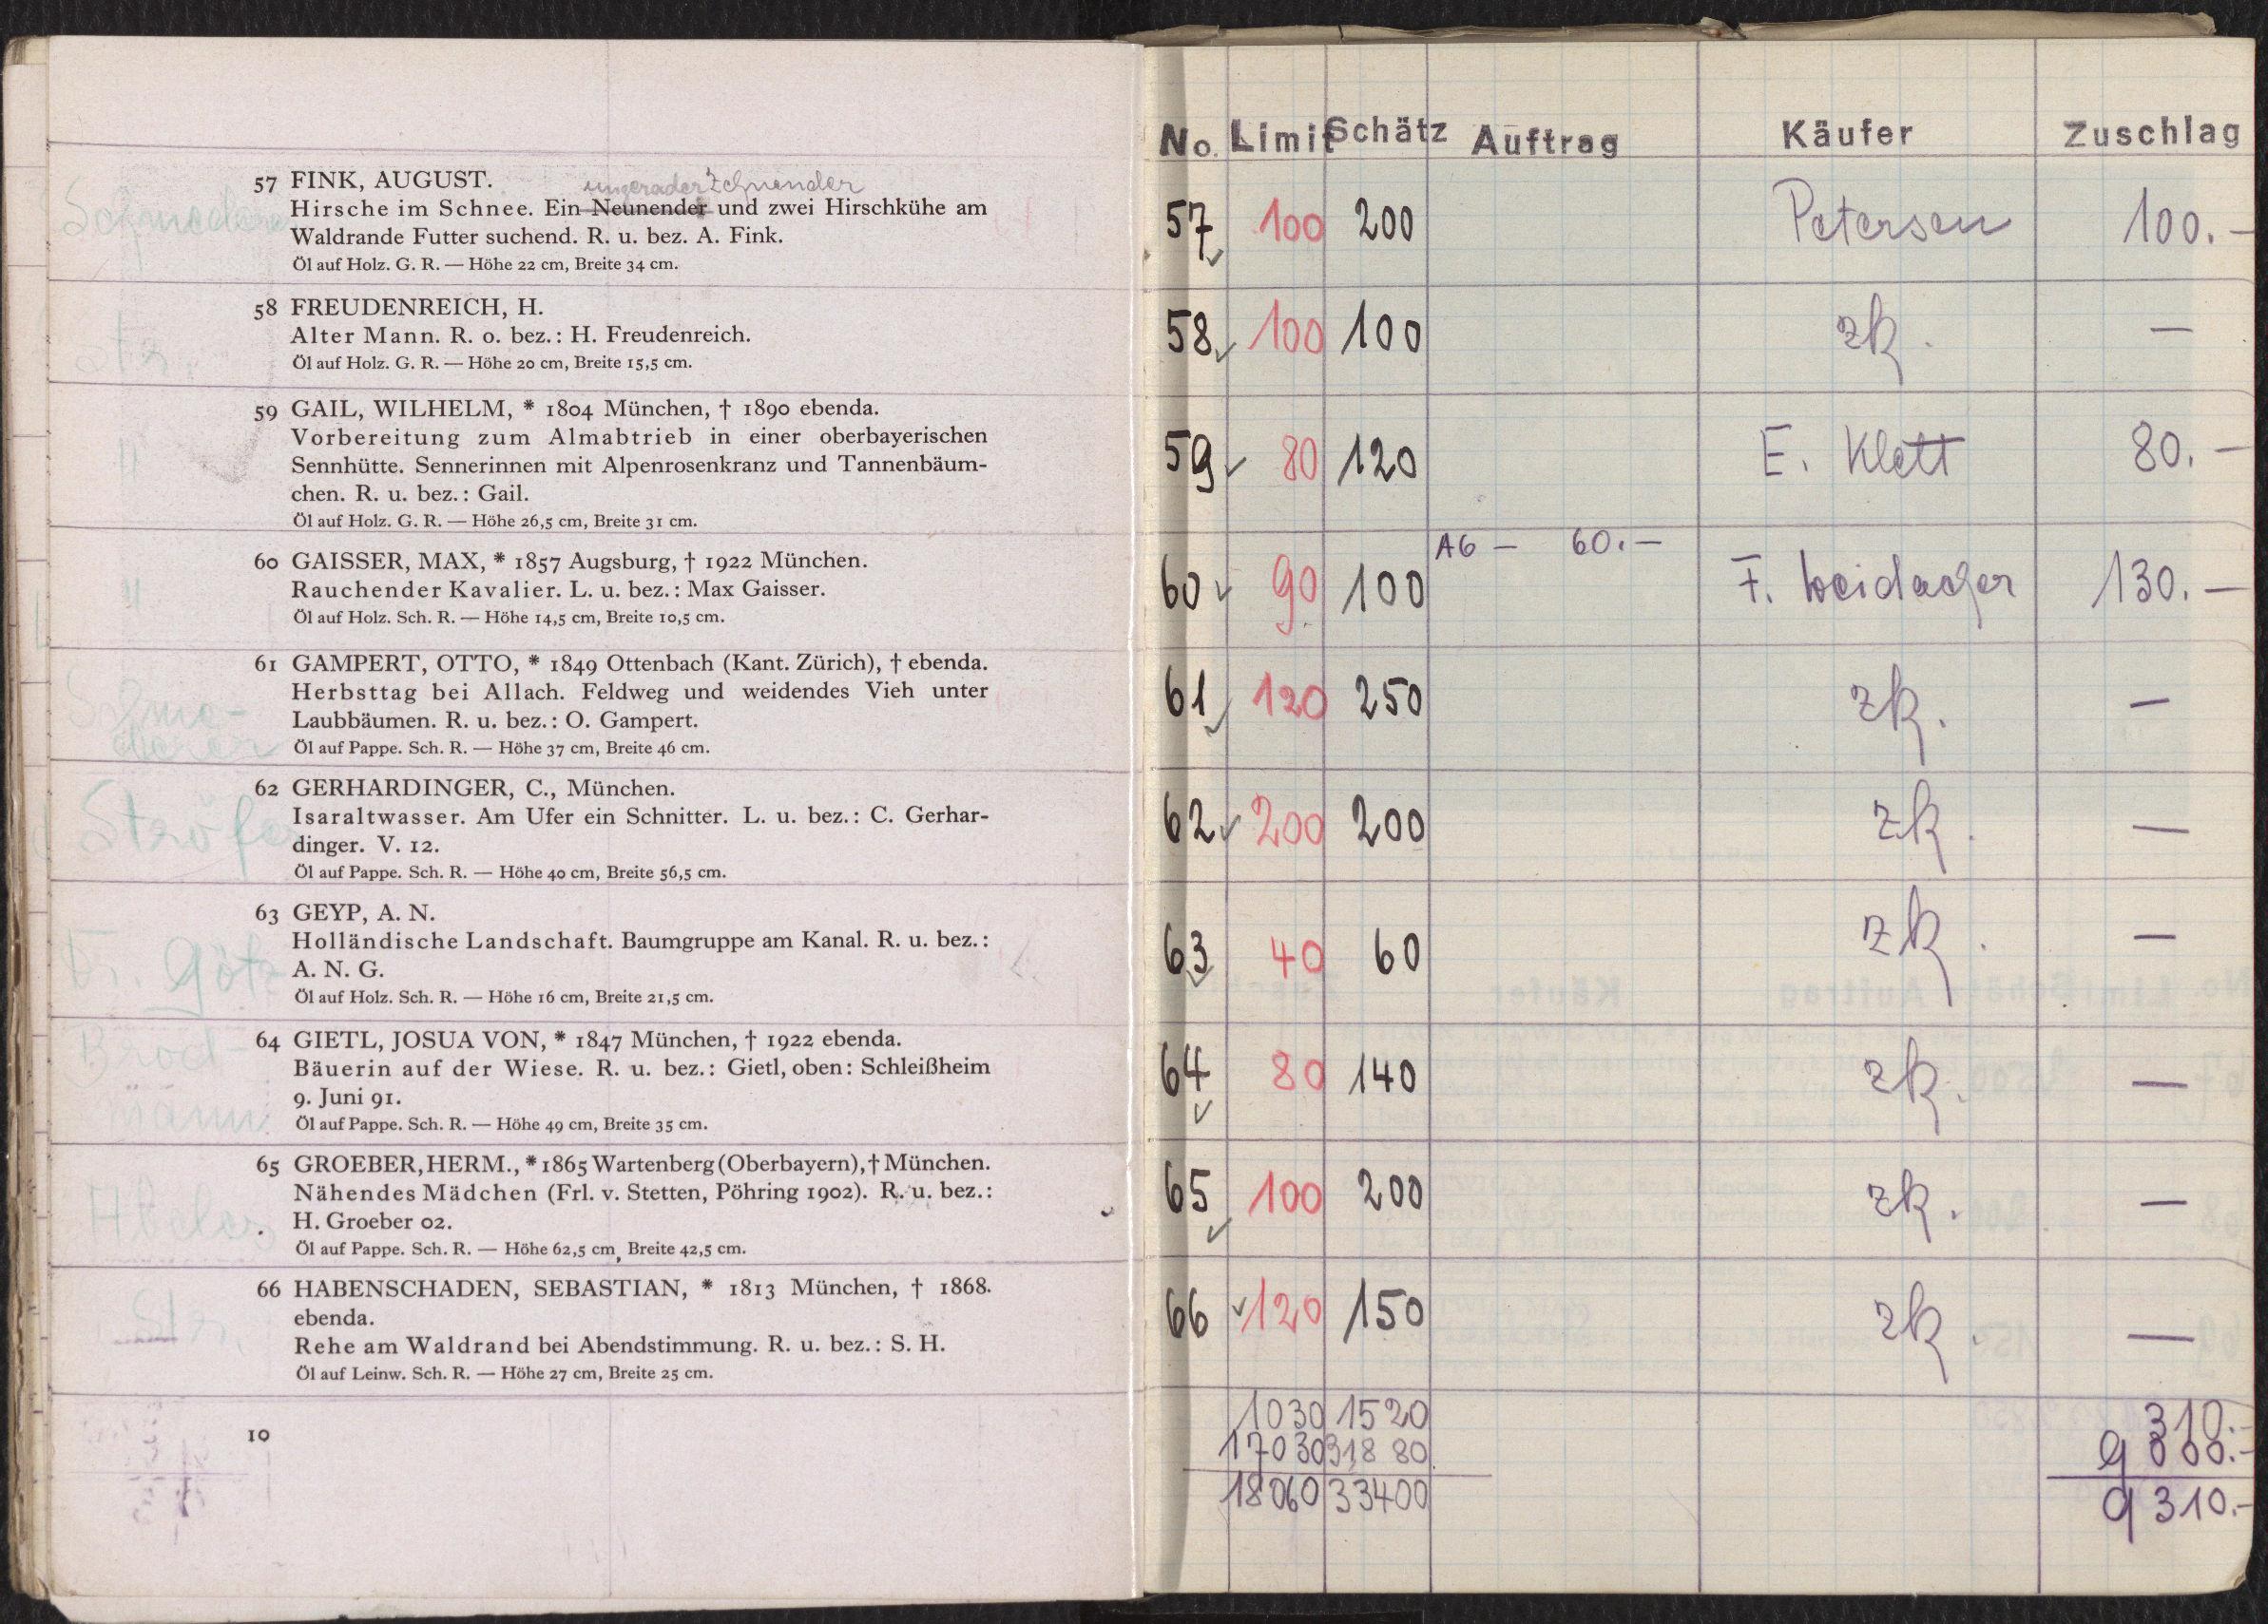 57 FINK, AUGUST.
ungerader Zehnender
Hirsche im Schnee. Ein Neunender und zwei Hirschkühe am
Waldrande Futter suchend. R. u. bez. A. Fink.
Öl auf Holz. G. R. — Höhe 22 cm, Breite 34 cm.
58 FREUDENREICH, H.
Alter Mann. R. o. bez.: H. Freudenreich.
Öl auf Holz. G. R. — Höhe 20 cm, Breite 15,5 cm.
59 GAIL, WILHELM, * 1804 München, † 1890 ebenda.
Vorbereitung zum Almabtrieb in einer oberbayerischen
Sennhütte. Sennerinnen mit Alpenrosenkranz und Tannenbäum-
chen. R. u. bez.: Gail.
Öl auf Holz. G. R. — Höhe 26,5 cm, Breite 31 cm.
60 GAISSER, MAX, * 1857 Augsburg, † 1922 München.
Rauchender Kavalier. L. u. bez.: Max Gaisser.
Öl auf Holz. Sch. R. — Höhe 14,5 cm, Breite 10,5 cm.
61 GAMPERT, OTTO, * 1849 Ottenbach (Kant. Zürich), † ebenda.
Herbsttag bei Allach. Feldweg und weidendes Vieh unter
Laubbäumen. R. u. bez.: O. Gampert.
Öl auf Pappe. Sch. R. — Höhe 37 cm, Breite 46 cm.
Ströfer
62 GERHARDINGER, C., München.
Isaraltwasser. Am Ufer ein Schnitter. L. u. bez.: C. Gerhar-
dinger. V. 12.
Öl auf Pappe. Sch. R. — Höhe 40 cm, Breite 56,5 cm.
Götz
63 GEYP, A. N.
Holländische Landschaft. Baumgruppe am Kanal. R. u. bez.:
A. N. G.
Öl auf Holz. Sch. R. — Höhe 16 cm, Breite 21,5 cm.
64 GIETL, JOSUA VON, * 1847 München, † 1922 ebenda.
Bäuerin auf der Wiese. R. u. bez.: Gietl, oben: Schleißheim
9. Juni 91.
Öl auf Pappe. Sch. R. — Höhe 49 cm, Breite 35 cm.
65 GROEBER, HERM., * 1865 Wartenberg (Oberbayern), † München.
Nähendes Mädchen (Frl. v. Stetten, Pöhring 1902). R. u. bez.:
H. Groeber 02.
Öl auf Pappe. Sch. R. — Höhe 62,5 cm, Breite 42,5 cm.
66 HABENSCHADEN, SEBASTIAN, * 1813 München, † 1868.
ebenda.
Rehe am Waldrand bei Abendstimmung. R. u. bez.: S. H.
Öl auf Leinw. Sch. R. — Höhe 27 cm, Breite 25 cm.
10
No. Limit Schätz Auftrag Käufer Zuschlag
57 100 200 Petersen 100.—
58 100 100 zk. —
59 80 120 E. Klett 80.—
A6 — 60.—
60 90 100 F. Weidacher 130.—
61 120 250 zk. —
62 200 200 zk. —
63 40 60 zk. —
64 80 140 zk. —
65 100 200 zk. —
66 120 150 zk. —
1030 1520 310.—
17030 31880 9000.—
18060 33400 9310.—